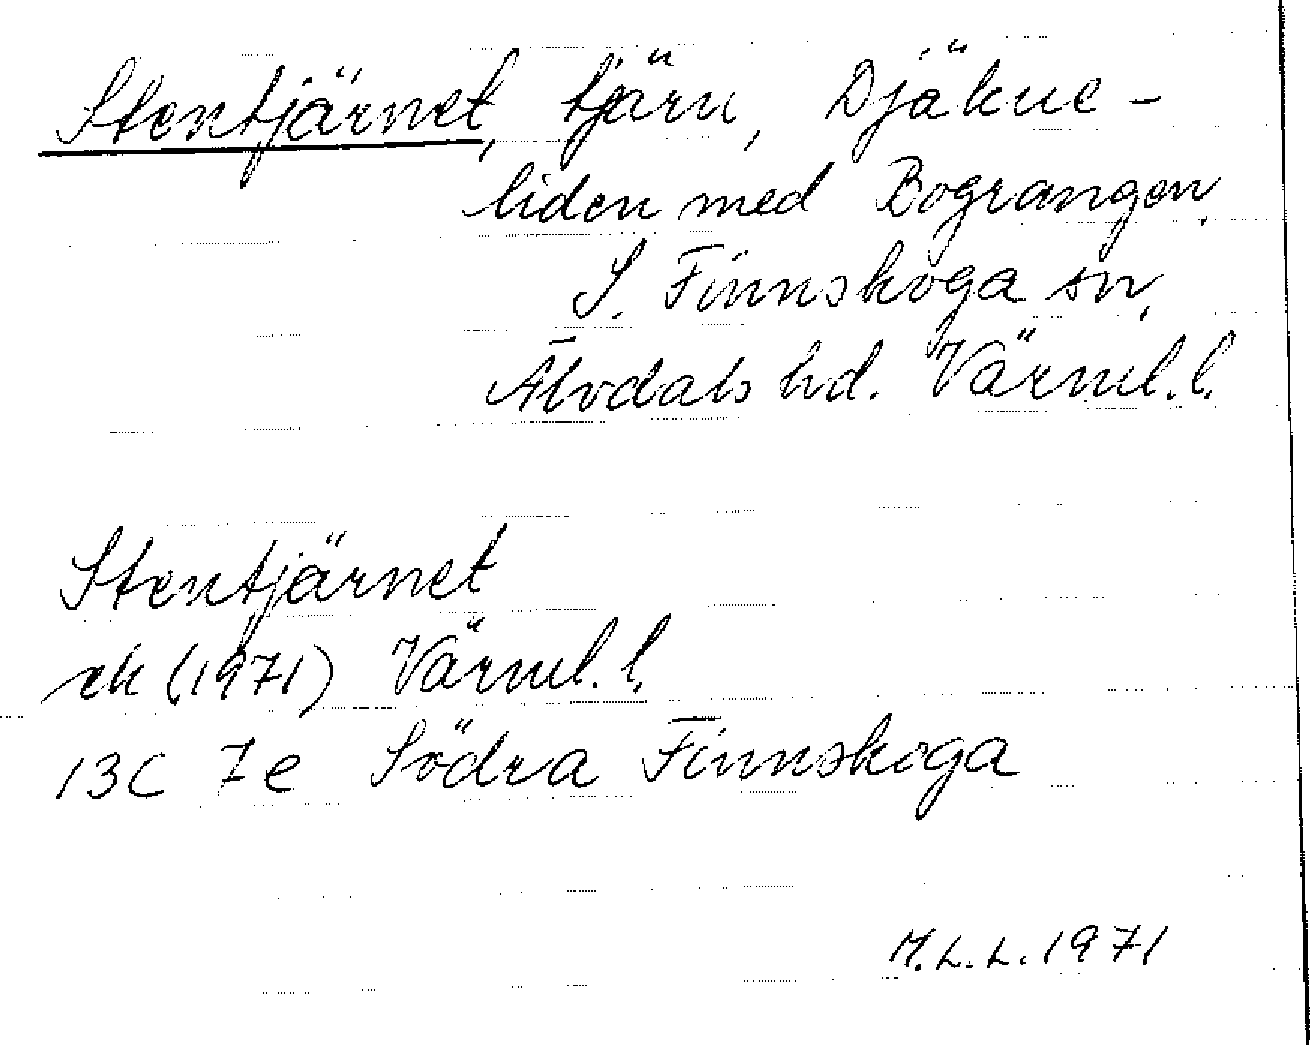 Stentjärnet, tjärn, Djäkne-
liden med Bograngen,
S. Finnskoga sn,
Älvdals hd. Värml. l.
Stentjärnet
ek (1971) Värml. l.
13C 7e Södra Finnskoga
M.L.L. 1971